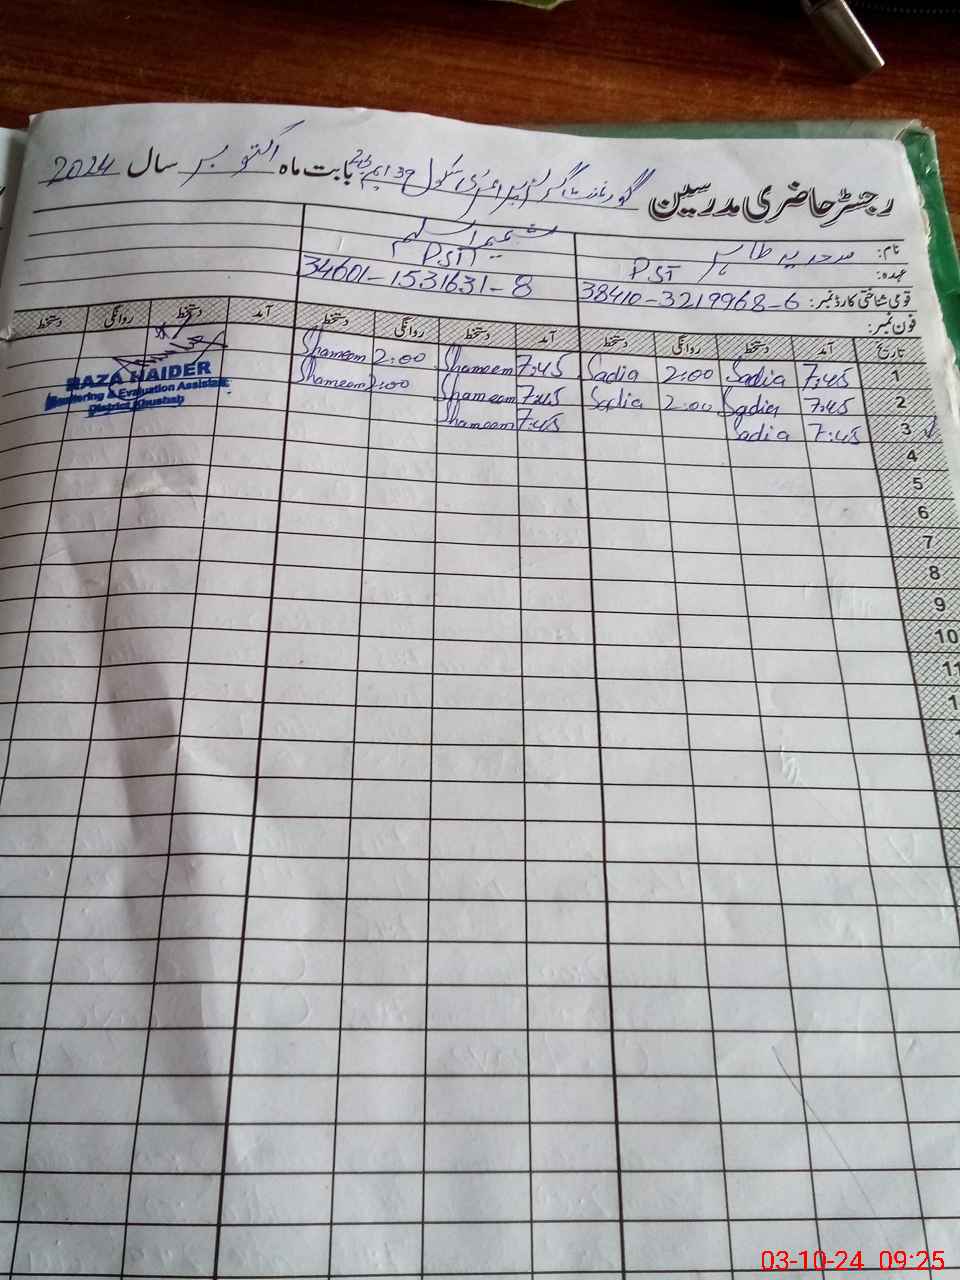 رجسٹر حاضری مدرسین گورنمنٹ گرلز پرائمری سکول بابت ماہ اکتوبر سال 2024
نام: سعدیہ طاہر شمیم اسلم
عہدہ: PST PST
قومی شناختی کارڈ نمبر: 38410-3219968-6 34601-1531631-8
فون نمبر:
تاریخ آمد دستخط روانگی دستخط آمد دستخط روانگی دستخط آمد دستخط روانگی دستخط
1 7:45 Sadia 2:00 Sadia 7:45 Shameem 2:00 Shameem
2 7:45 Sadia 2:00 Sadia 7:45 Shameem 2:00 Shameem
3 7:45 Sadia 7:45 Shameem
RAZA HAIDER
Monitoring & Evaluation Assistant
District Khushab
4
5
6
7
8
9
10
11
03-10-24 09:25